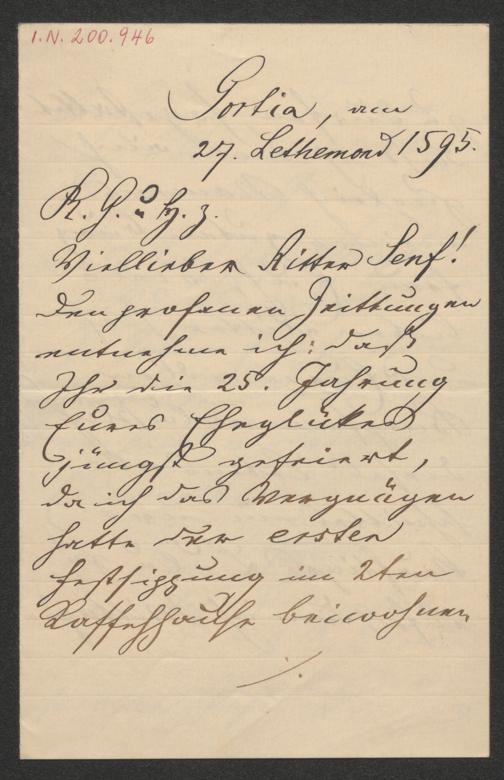 I. N. 200.946
Gortia, am
27. Lethemond 1595.
R. G. u. H. z.
Viellieber Ritter Senf!
Den profanen Zeittungen
entnehme ich: daß
Ihr die 25. Jahrung
Eures Eheglückes
jüngst gefeiert,
da ich das Vergnügen
hatte der ersten
Festsippung im 2ten
Kaffehhause beiwohnen
./.